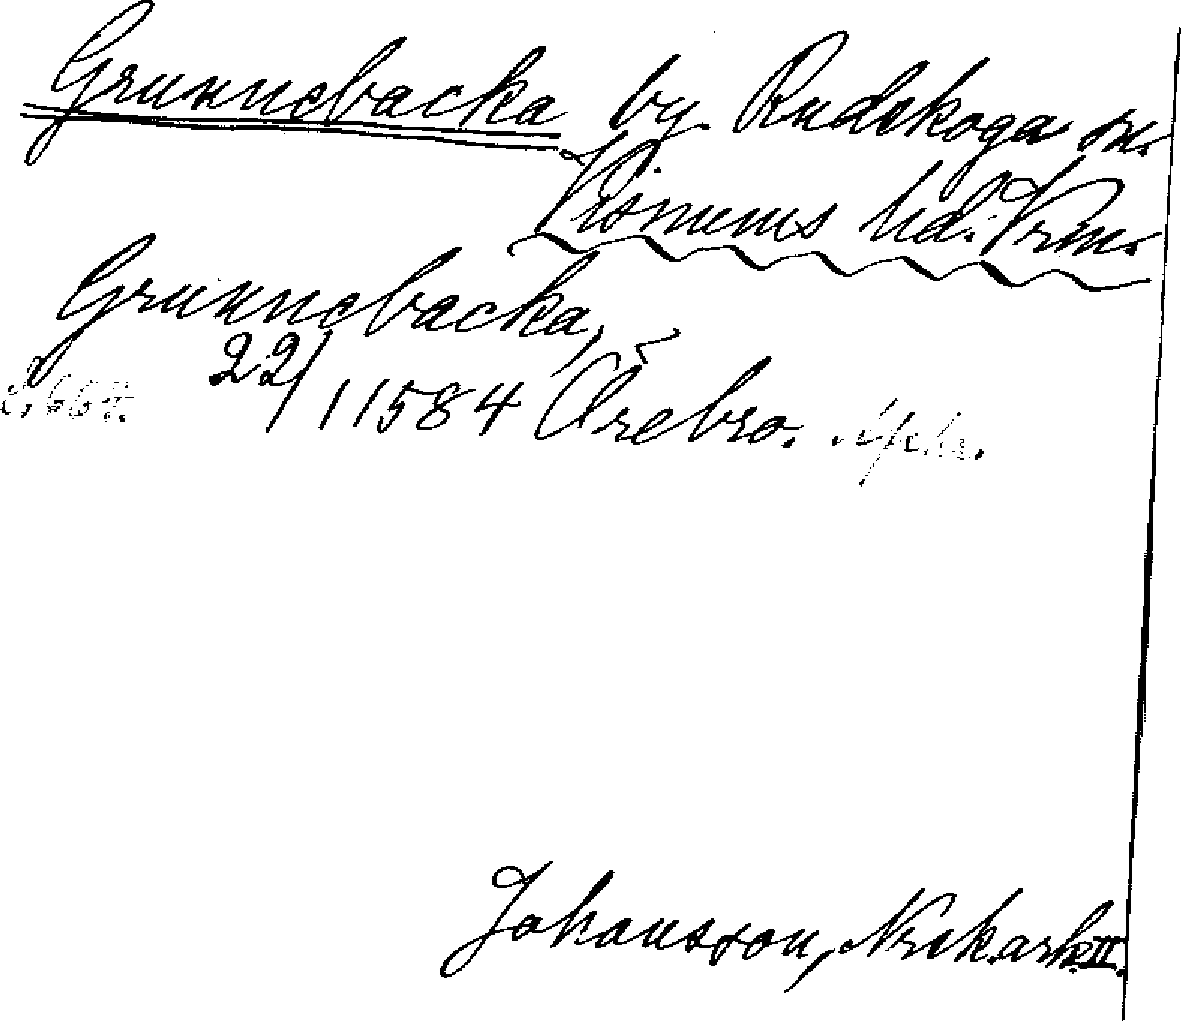 Grunnebacka by Rudskoga sn.
Visnums hd. Vrm.
Grunnebacka,
22/11584 Örebro.
Johansson, Nrikark II.